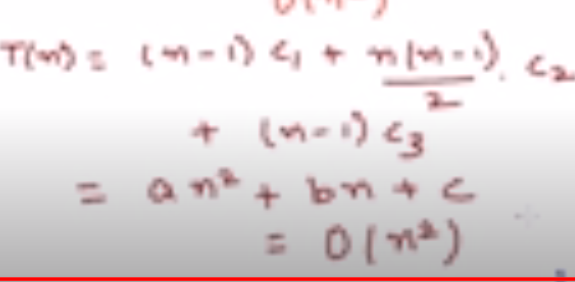 T(n) = (n-1) c₁ + n(n-1)/2 . c₂
+ (n-1) c₃
= an² + bn + c
= O(n²)